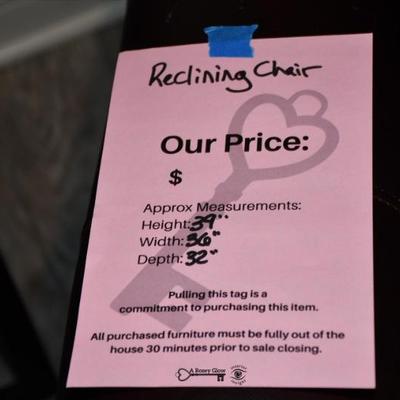 Reclining Chair
Our Price:
$
Approx Measurements:
Height: 39"
Width: 36"
Depth: 32"
Pulling this tag is a
commitment to purchasing this item.
All purchased furniture must be fully out of the
house 30 minutes prior to sale closing.
A Rosey Glow